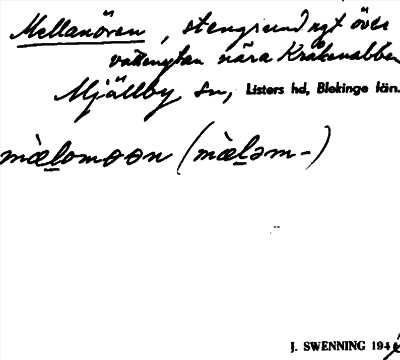 Mellanören, stengrund nyt över
vattenytan nära Kråkenabben
Mjällby sn, Listers hd, Blekinge län.
mæ̀lomɵɵn (mæ̀ləm-)
J. SWENNING 194